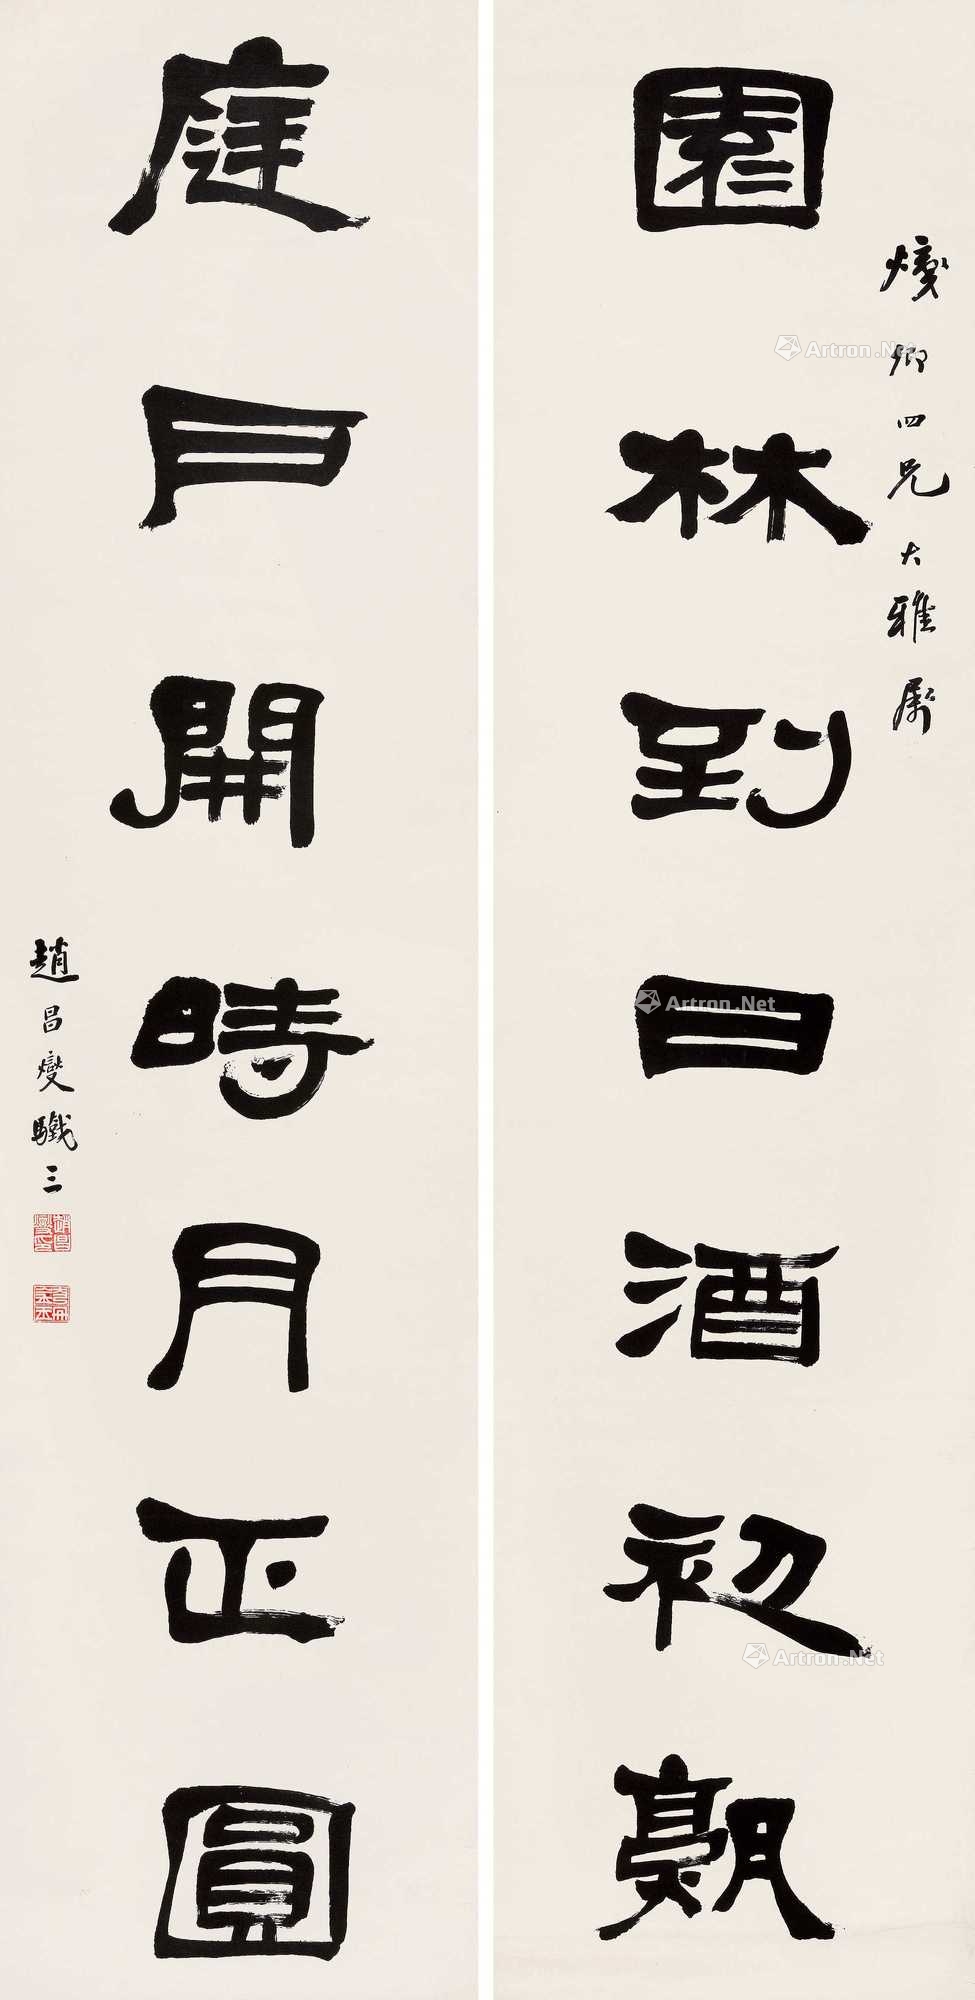 園林到日酒初熟
卿四兄大雅屬
庭戶開時月正圓
趙昌燮驖三
趙昌燮印
Artron.Net
Artron.Net
Artron.Net